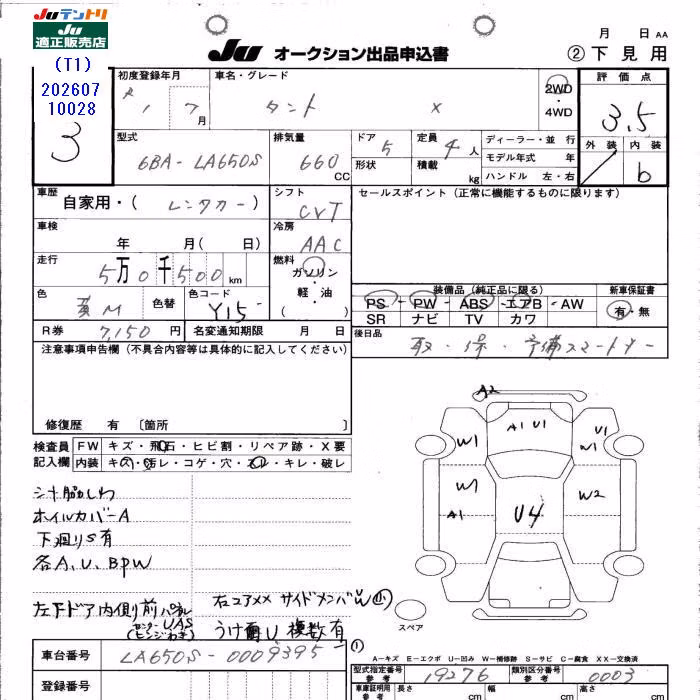 Juテントリ
Ju
適正販売店
(T1)
202607
10028
3
Ju オークション出品申込書
月 日 AA
② 下見用
初度登録年月
1 7 月
車名・グレード
タント X
2WD
・
4WD
評価点
3.5
外装 内装
b
型式
6BA- LA650S
排気量
660 CC
ドア 5
形状
定員 4 人
積載 kg
ディーラー・並 行
モデル年式 年
ハンドル 左・右
車歴
自家用・( レンタカー )
シフト
CVT
セールスポイント (正常に機能するものに限ります)
車検
年 月( 日)
冷房
AAC
走行
5万0千500 km
燃料
ガソリン
・
軽・油
( )
色
黄M
色替
色コード
Y15
装備品 (純正品に限る)
PS - PW - ABS - エアB - AW
SR ナビ TV カワ
新車保証書
有・無
R券 7,150 円
名変通知期限 月 日
後日品
取・保・予備スマートキー
注意事項申告欄 (不具合内容等は具体的に記入してください)
修復歴 有 〔箇所 〕
検査員
記入欄
FW キズ・飛石・ヒビ割・リペア跡・X要
内装 キズ・汚レ・コゲ・穴・スレ・キレ・破レ
シート脇しわ
ホイルカバーA
下廻りS有
各A、U、BPW
左下ドア内側前パネル
センターUAS
(ヒンジわき)
右コアXX サイドメンバW
うけ部U 複数有
A2
A1 U1
W1
U1
W1
W1
A1
U4
W2
スペア
A－キズ E－エクボ U－凹み W－補修跡 S－サビ C－腐食 XX－交換済
車台番号 LA650S - 0009395
登録番号
①
型式指定番号
参考
19276
類別区分番号
参考
0003
車庫証明用
参考
長さ cm
幅 cm
高さ cm